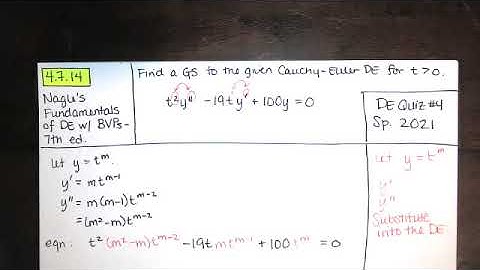 4.7.14
Nagle's
Fundamentals
of DE w/ BVPs-
7th ed.
Find a GS to the given Cauchy-Euler DE for t > 0.
t²y" -19ty' +100y = 0
DE Quiz #4
Sp. 2021
let y = tᵐ.
y' = mtᵐ⁻¹
y" = m(m-1)tᵐ⁻²
= (m²-m)tᵐ⁻²
eqn: t²(m²-m)tᵐ⁻² -19tmtᵐ⁻¹ +100tᵐ = 0
let y = tᵐ
y'
y"
Substitute
into the DE